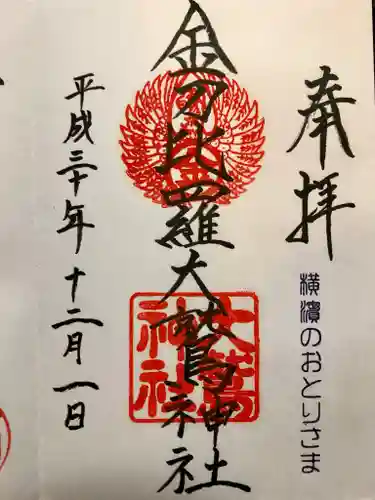 奉拝
横濱のおとりさま
金刀比羅大鷲神社
大鷲神社
平成三十年十二月一日